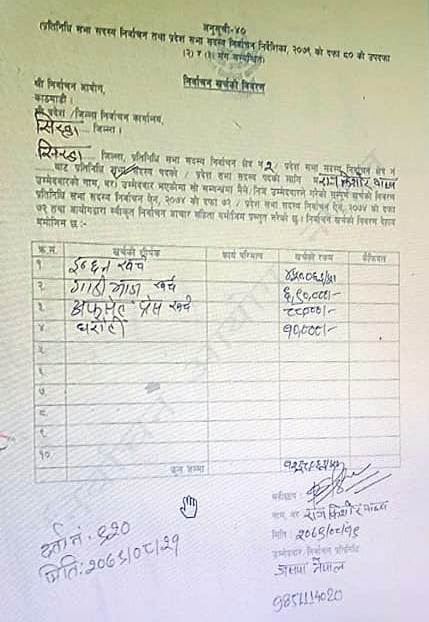 अनुसूची-४०
(प्रतिनिधि सभा सदस्य निर्वाचन तथा प्रदेश सभा सदस्य निर्वाचन निर्देशिका, २०७९ को दफा ८० को उपदफा
(२) र (३) सँग सम्बन्धित)
निर्वाचन खर्चको विवरण
श्री निर्वाचन आयोग,
काठमाडौं ।
श्री प्रदेश /जिल्ला निर्वाचन कार्यालय,
सिरहा जिल्ला ।
सिरहा जिल्ला, प्रतिनिधि सभा सदस्य निर्वाचन क्षेत्र नं. २/ प्रदेश सभा सदस्य निर्वाचन क्षेत्र नं
बाट प्रतिनिधि सभा सदस्य पदको / प्रदेश सभा सदस्य पदको लागि म राज किशोर यादव
उम्मेदवारको नाम, थर) उम्मेदवार भएकोमा सो सम्बन्धमा मैले/निज उम्मेदवारले गरेको सम्पूर्ण खर्चको विवरण
प्रतिनिधि सभा सदस्य निर्वाचन ऐन, २०७४ को दफा ७१ / प्रदेश सभा सदस्य निर्वाचन ऐन, २०७४ को दफा
७१ तथा आयोगद्वारा स्वीकृत निर्वाचन आचार संहिता बमोजिम प्रस्तुत गरेको छु । निर्वाचन खर्चको विवरण देहाय
बमोजिम छ :-
क्र.सं. खर्चको शीर्षक कार्य परिमाण खर्चको रकम कैफियत
१ इन्धन खर्च
२. गाडी भाडा खर्च ६,९०,०००/-
३ अफसेट प्रेस खर्च ८८०००/-
४ धरौटी १०,०००/-
५
६
७
८.
९.
१०.
कुल जम्मा
दस्तखत :
नाम, थर राज किशोर यादव
मिति : २०७९/०८/१९
उम्मेदवार/निर्वाचन प्रतिनिधि
जसपा नेपाल
9851114020
दर्ता नं : ६२०
मिति: २०७९/०८/२१